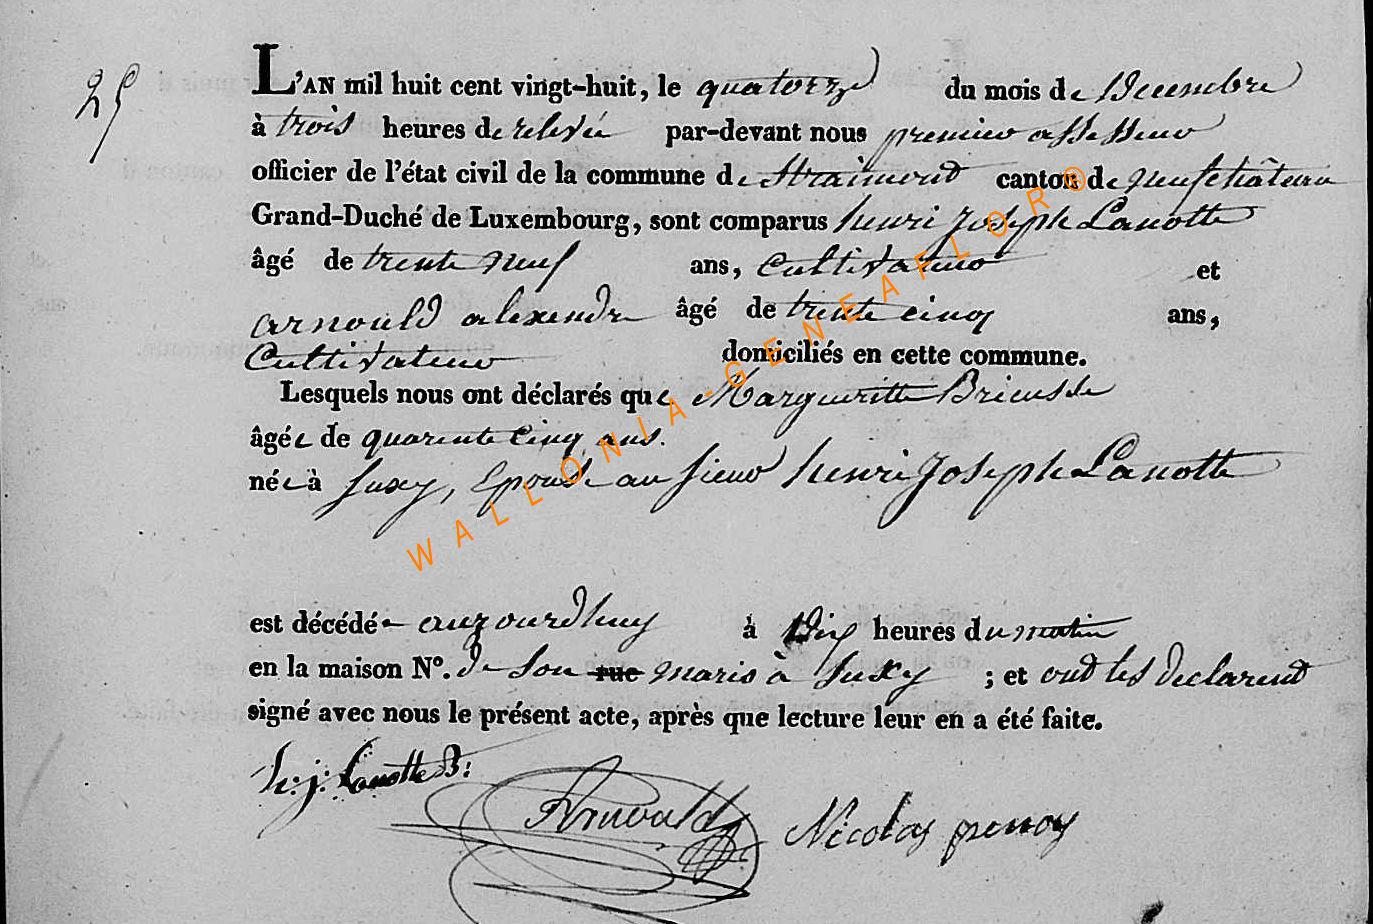 25
L'AN mil huit cent vingt-huit, le quatorze du mois de Decembre
à trois heures de relevée par-devant nous premier assesseur
officier de l'état civil de la commune de Straimont canton de neufchâteau
Grand-Duché de Luxembourg, sont comparus henri Joseph Lanotte
âgé de trente neuf ans, cultivateur et
arnould alexendre âgé de trente cinq ans,
Cultivateur domiciliés en cette commune.
Lesquels nous ont déclarés que Margueritte Briensse
âgée de quarente cinq ans.
née à Suxy, Epouse au sieur henri Joseph Lanotte
est décédée aujourdhuy à Dix heures du matin
en la maison N°. de son rue maris à Suxy ; et ont les declarent
signé avec nous le présent acte, après que lecture leur en a été faite.
h: j: Lanotte B:
Arnould
Nicolas pierroy
WALLONIA-GENEAFLOR®